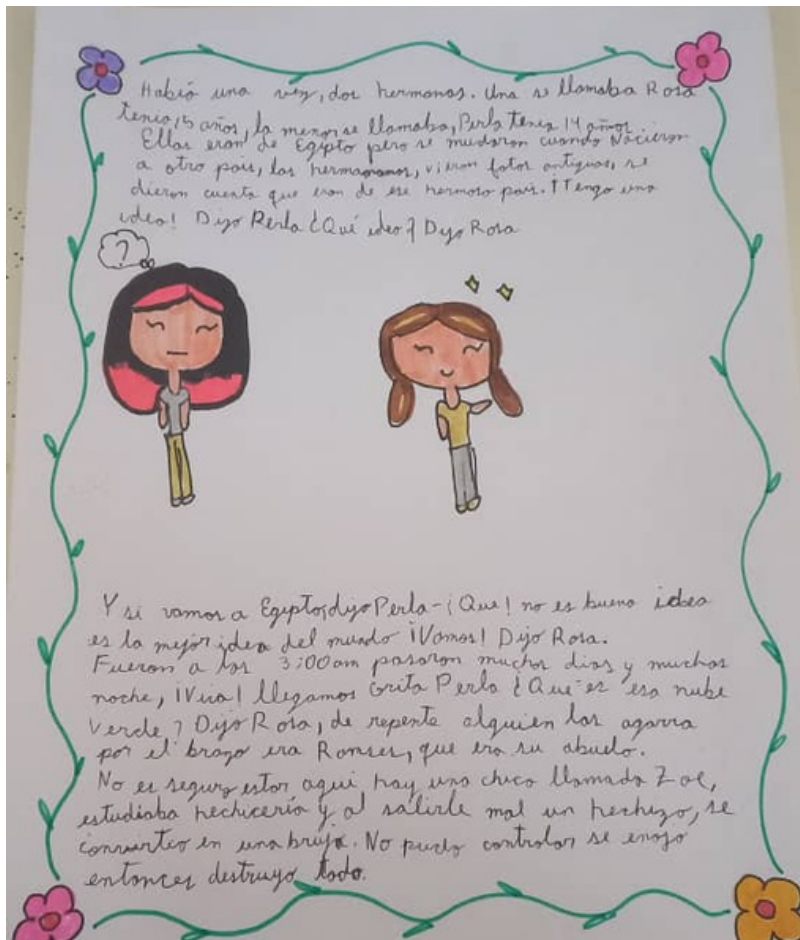 Había una vez, dos hermanas. Una se llamaba Rosa
tenia 15 años, la menor se llamaba, Perla tenia 14 años.
Ellas eran de Egipto pero se mudaron cuando Nacieron
a otro pais, las hermamanas, vieron fotos antiguas, se
dieron cuenta que eran de ese hermoso pais. ¡Tengo una
idea! Dijo Perla ¿Qué idea? Dijo Rosa
?
Y si vamos a Egipto, dijo Perla - ¡Que! no es buena idea
es la mejor idea del mundo ¡Vamos! Dijo Rosa.
Fueron a las 3:00am pasaron muchos dias y muchas
noche, ¡Viva! llegamos Grita Perla ¿Que es esa nube
verde? Dijo Rosa, de repente alguien las agarra
por el brazo era Ramses, que era su abuelo.
No es seguro estar aqui hay una chica llamada Zoe,
estudiaba hechicería y al salirle mal un hechizo, se
convirtio en una bruja. No pudo controlar se enojo
entonces destruyo todo.